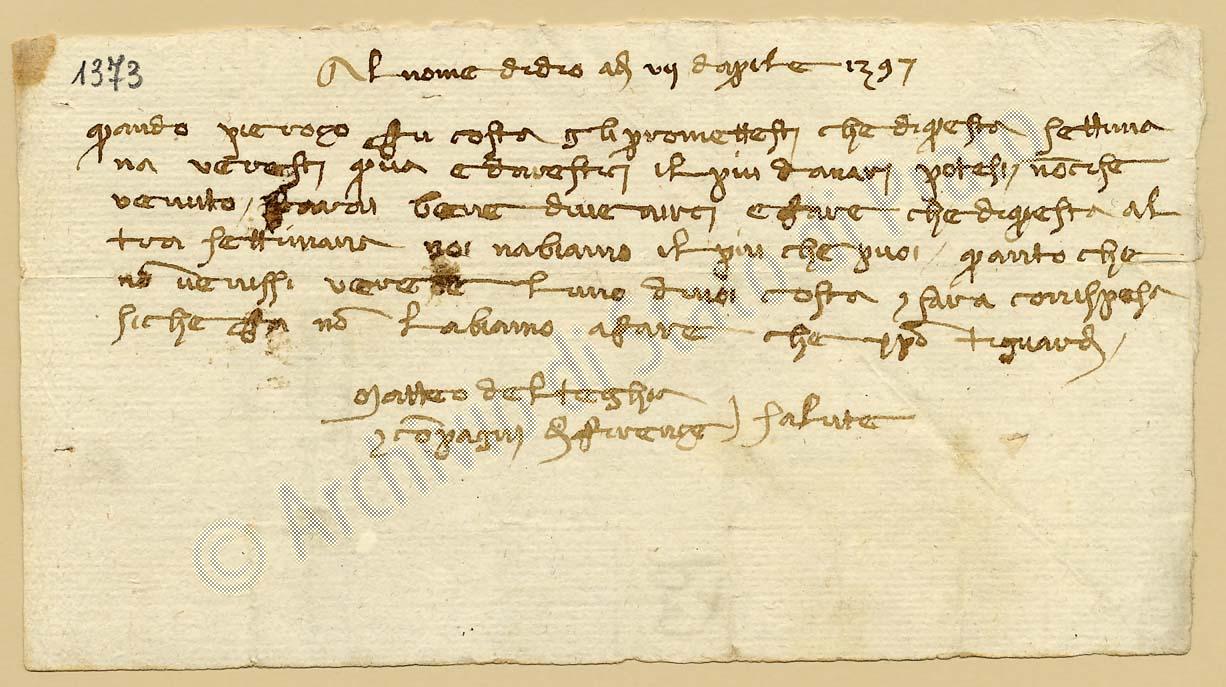 1373
Al nome di dio adì vii daprile 1397
quando pierozo fu costa gli promettesti che diquesta settima
na veresti qua e darestici il più danari potessi / nonche
venuto / farai bene divenirci e fare che diquesta al
tra settimana noi nabiamo il più che puoi / quanto che
nō venissi verebe luno di noi costa e sara corrispesa
siche fa nō labiamo a fare che xpō tiguardi /
Matteo del teghia
e conpagni di firenze / salute
© Archivio di Stato di Prato